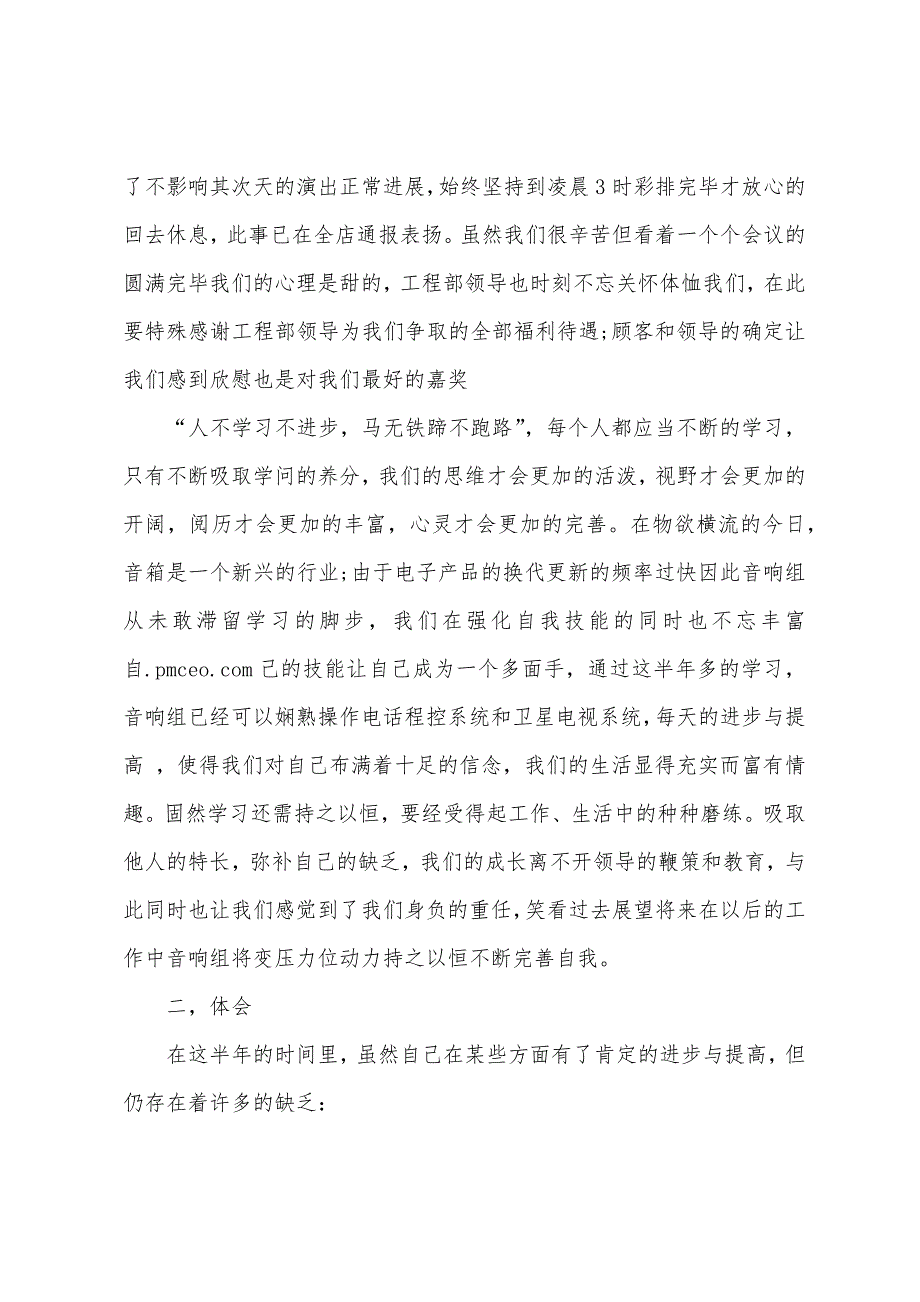 了不影响其次天的演出正常进展，始终坚持到凌晨 3 时彩排完毕才放心的
回去休息，此事已在全店通报表扬。虽然我们很辛苦但看着一个个会议的
圆满完毕我们的心理是甜的，工程部领导也时刻不忘关怀体恤我们，在此
要特殊感谢工程部领导为我们争取的全部福利待遇;顾客和领导的确定让
我们感到欣慰也是对我们最好的嘉奖
“人不学习不进步，马无铁蹄不跑路”，每个人都应当不断的学习，
只有不断吸取学问的养分，我们的思维才会更加的活泼，视野才会更加的
开阔，阅历才会更加的丰富，心灵才会更加的完善。在物欲横流的今日，
音箱是一个新兴的行业;由于电子产品的换代更新的频率过快因此音响组
从未敢滞留学习的脚步，我们在强化自我技能的同时也不忘丰富
自.pmceo.com己的技能让自己成为一个多面手，通过这半年多的学习，
音响组已经可以娴熟操作电话程控系统和卫星电视系统，每天的进步与提
高 ，使得我们对自己布满着十足的信念，我们的生活显得充实而富有情
趣。固然学习还需持之以恒，要经受得起工作、生活中的种种磨练。吸取
他人的特长，弥补自己的缺乏，我们的成长离不开领导的鞭策和教育，与
此同时也让我们感觉到了我们身负的重任，笑看过去展望将来在以后的工
作中音响组将变压力位动力持之以恒不断完善自我。
二，体会
在这半年的时间里，虽然自己在某些方面有了肯定的进步与提高，但
仍存在着许多的缺乏：